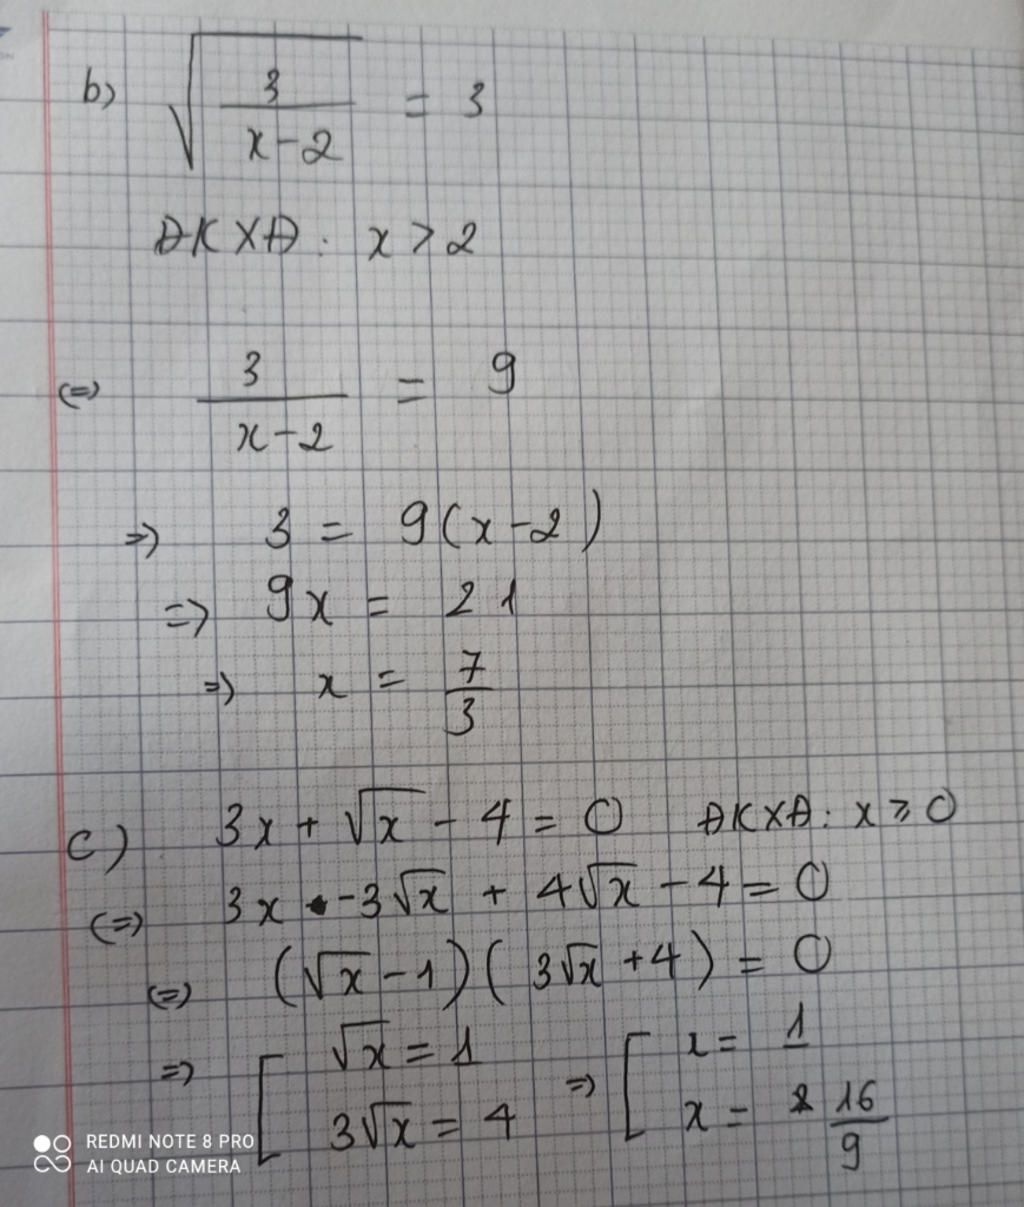 b) √(3/(x-2)) = 3
ĐKXĐ: x > 2
(=) 3/(x-2) = 9
=) 3 = 9(x-2)
=) 9x = 21
=) x = 7/3
c) 3x + √x - 4 = 0 ĐKXĐ: x ≥ 0
(=) 3x - 3√x + 4√x - 4 = 0
(=) (√x - 1)(3√x + 4) = 0
=) [ √x = 1 =) [ x = 1
3√x = 4 x = 16/9
REDMI NOTE 8 PRO
AI QUAD CAMERA